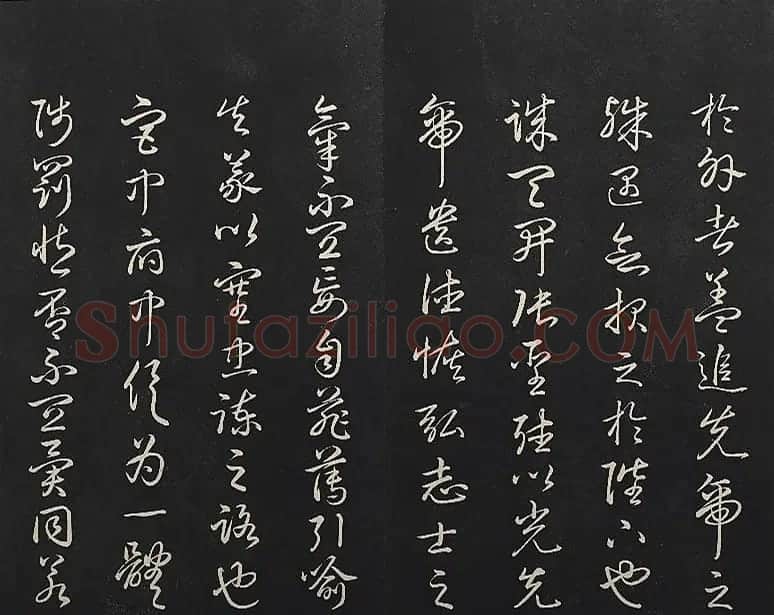 於外者蓋追先帝之
殊遇欲報之於陛下也
誠宜開張聖聽以光先
帝遺德恢弘志士之
氣不宜妄自菲薄引喻
失義以塞忠諫之路也
宮中府中俱為一體
陟罰臧否不宜異同若
Shufaziliao.COM